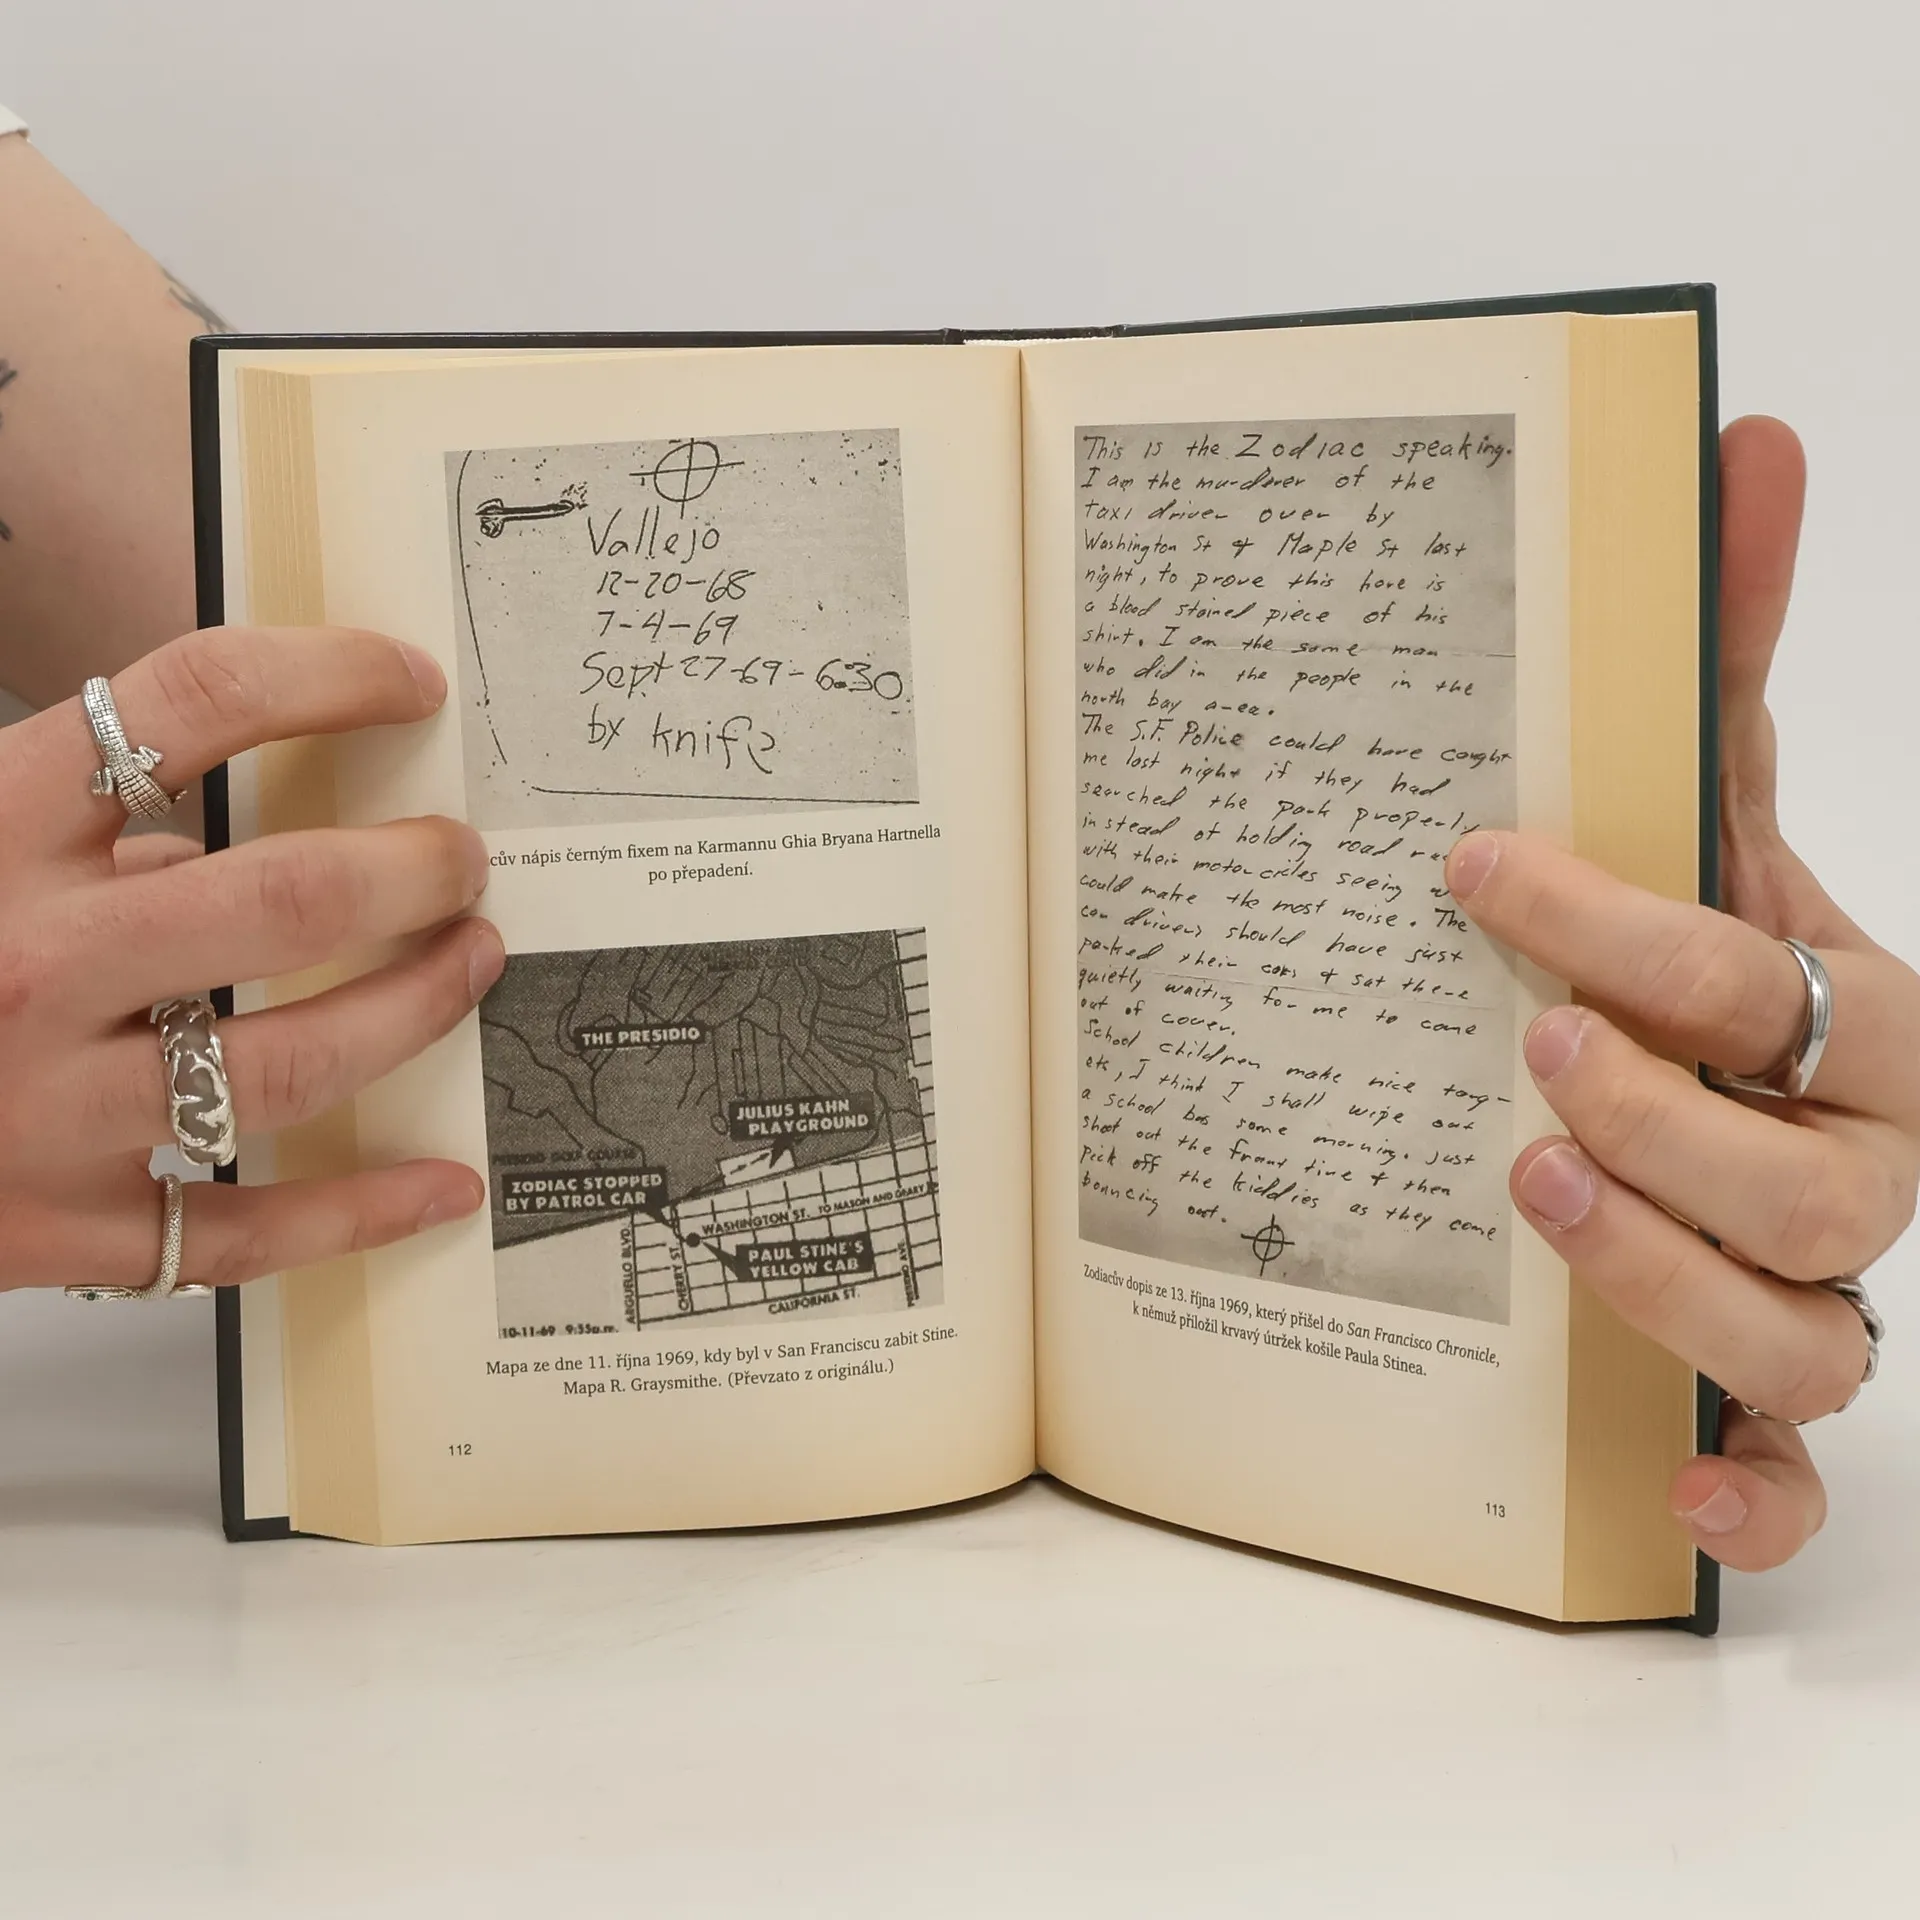 Vallejo
12-20-68
7-4-69
Sept 27-69-6:30
by knife
cův nápis černým fixem na Karmannu Ghia Bryana Hartnella
po přepadení.
THE PRESIDIO
JULIUS KAHN
PLAYGROUND
PRESIDIO GOLF COURSE
ZODIAC STOPPED
BY PATROL CAR
WASHINGTON ST. TO MASON AND GEARY
PAUL STINE'S
YELLOW CAB
ARGUELLO BLVD.
CHERRY ST.
PRESIDIO AVE.
CALIFORNIA ST.
10-11-69 9:55p.m.
Mapa ze dne 11. října 1969, kdy byl v San Franciscu zabit Stine.
Mapa R. Graysmithe. (Převzato z originálu.)
112
This is the Zodiac speaking.
I am the murderer of the
taxi driver over by
Washington St & Maple St last
night, to prove this here is
a blood stained piece of his
shirt. I am the same man
who did in the people in the
north bay area.
The S.F. Police could have caught
me last night if they had
searched the park properly
instead of holding road
with their motorcicles seeing
could make the most noise. The
car drivers should have just
parked their cars & sat there
quietly waiting for me to come
out of cover.
School children make nice targ-
ets, I think I shall wipe out
a school bus some morning. Just
shoot out the front tire & then
pick off the kiddies as they come
bouncing out.
Zodiacův dopis ze 13. října 1969, který přišel do San Francisco Chronicle,
k němuž přiložil krvavý útržek košile Paula Stinea.
113